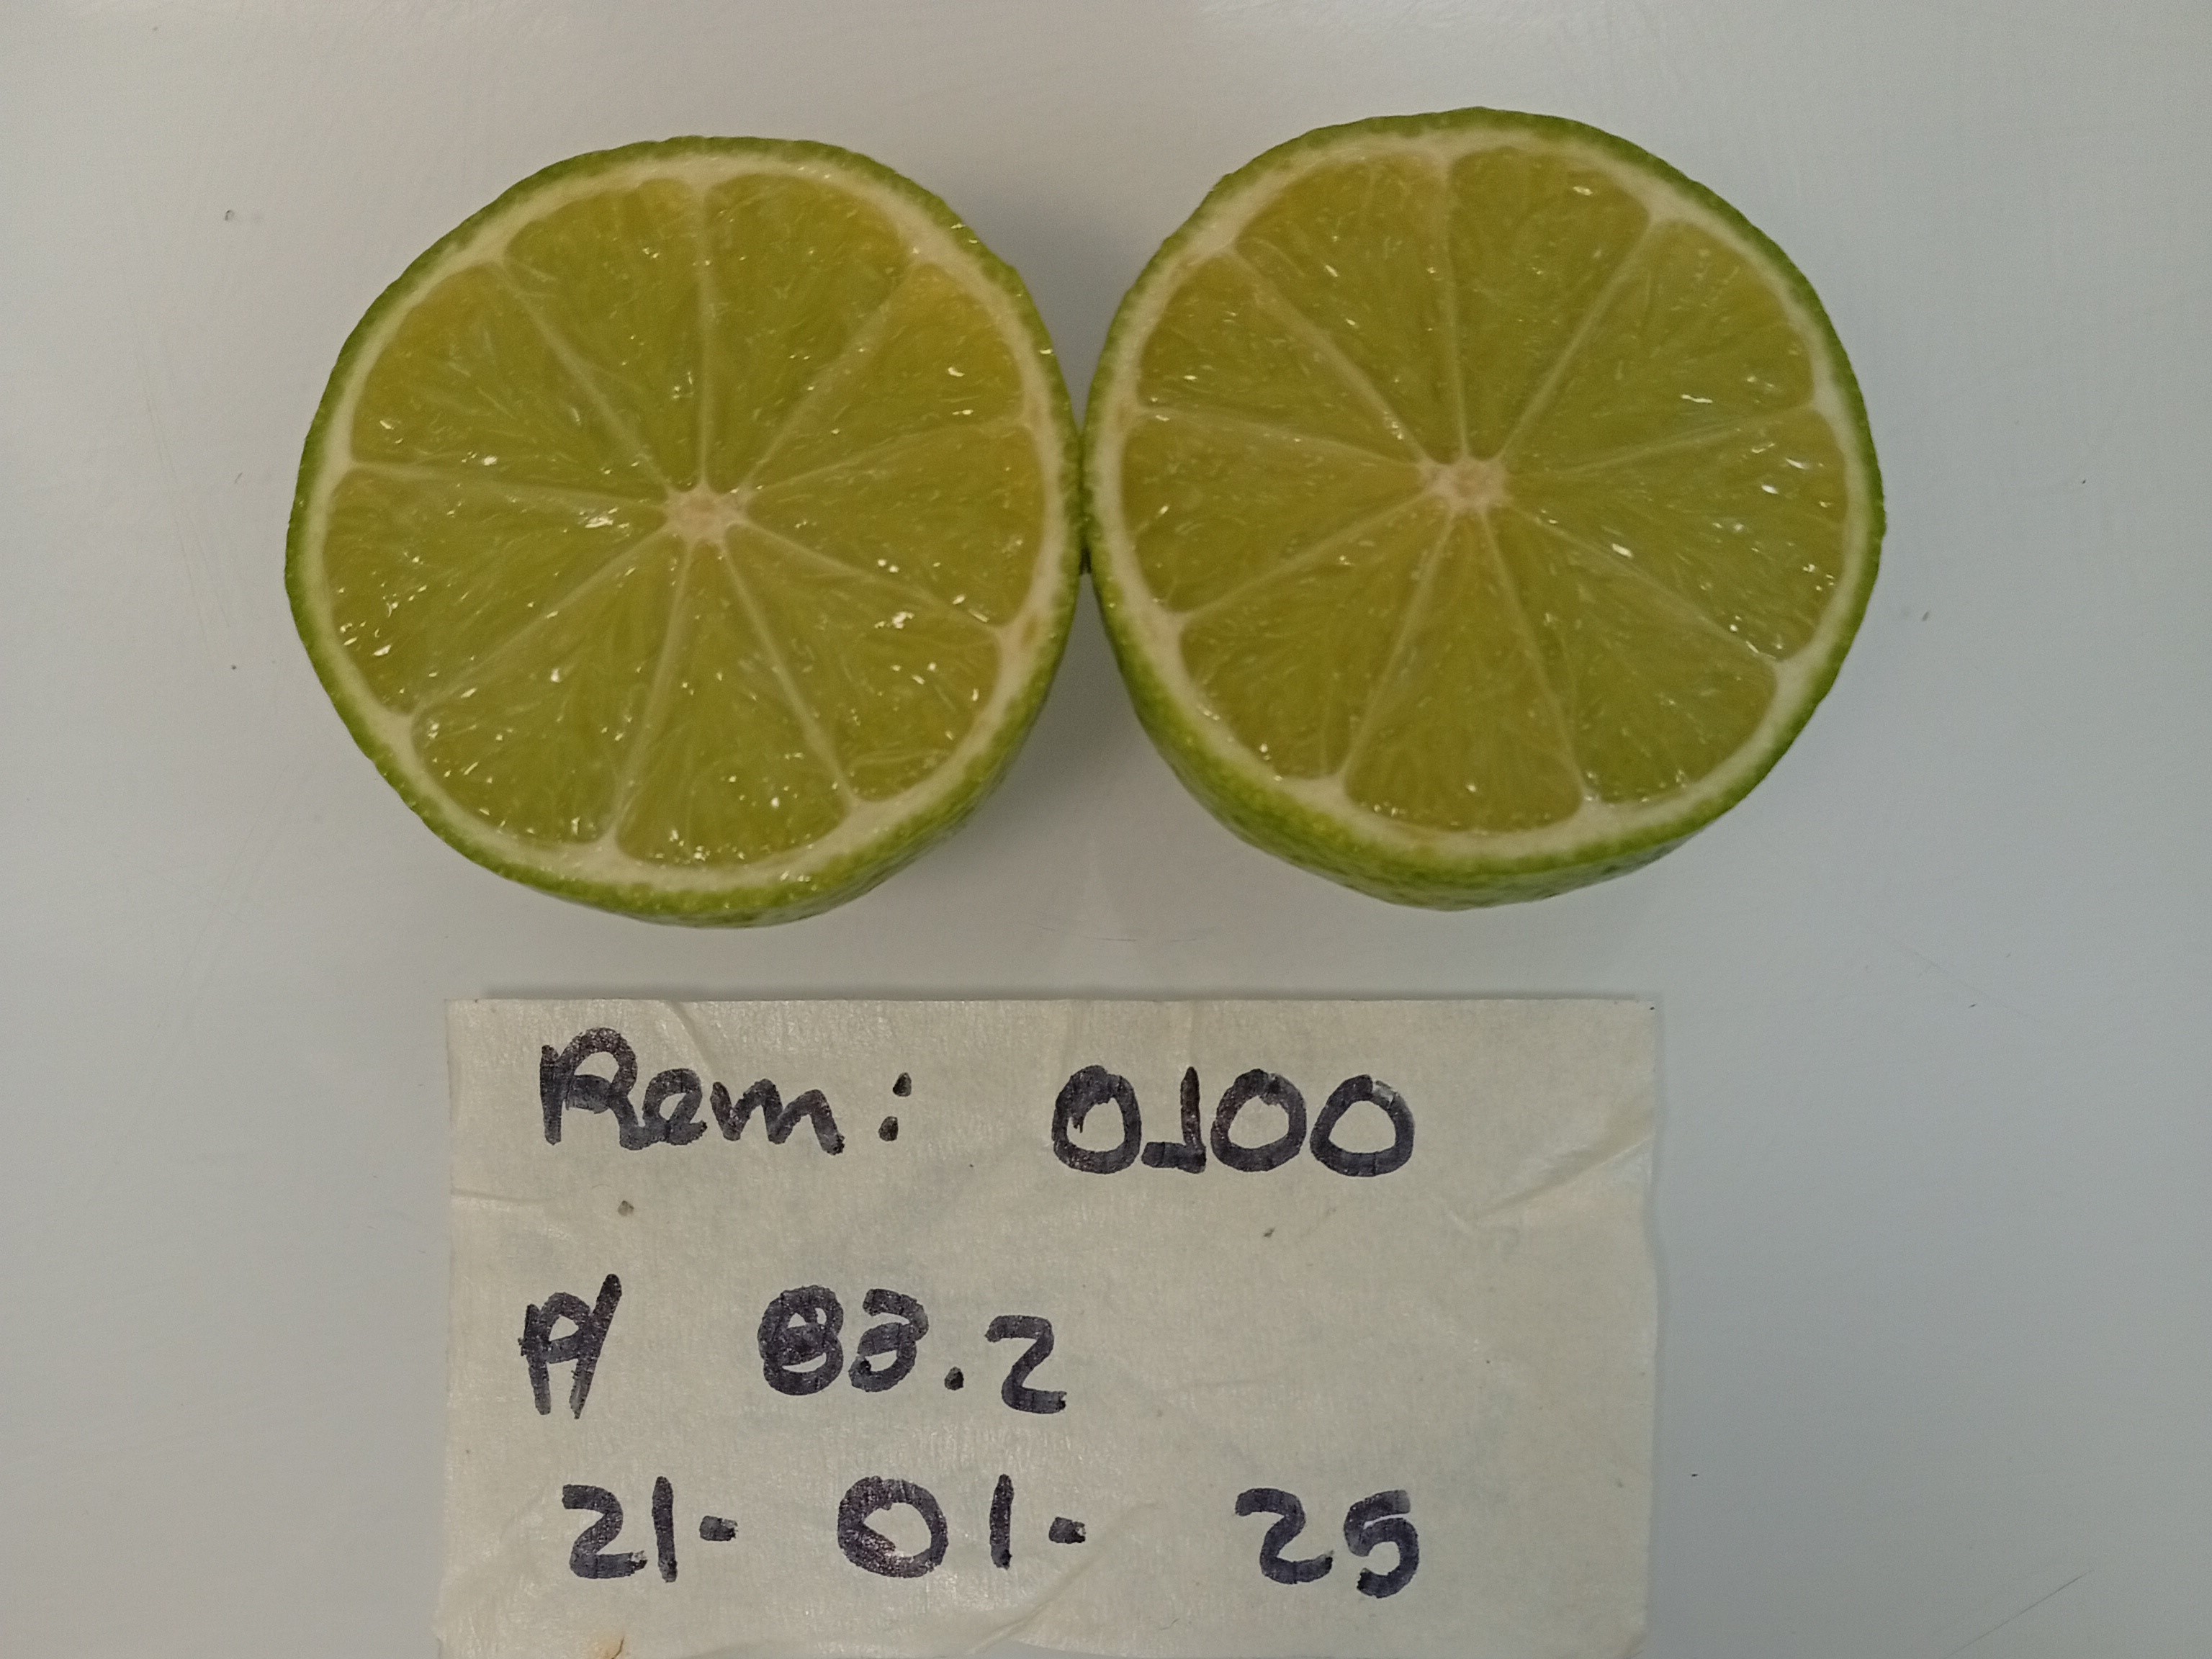 Rem: 0100
P/ 83.2
21- 01- 25